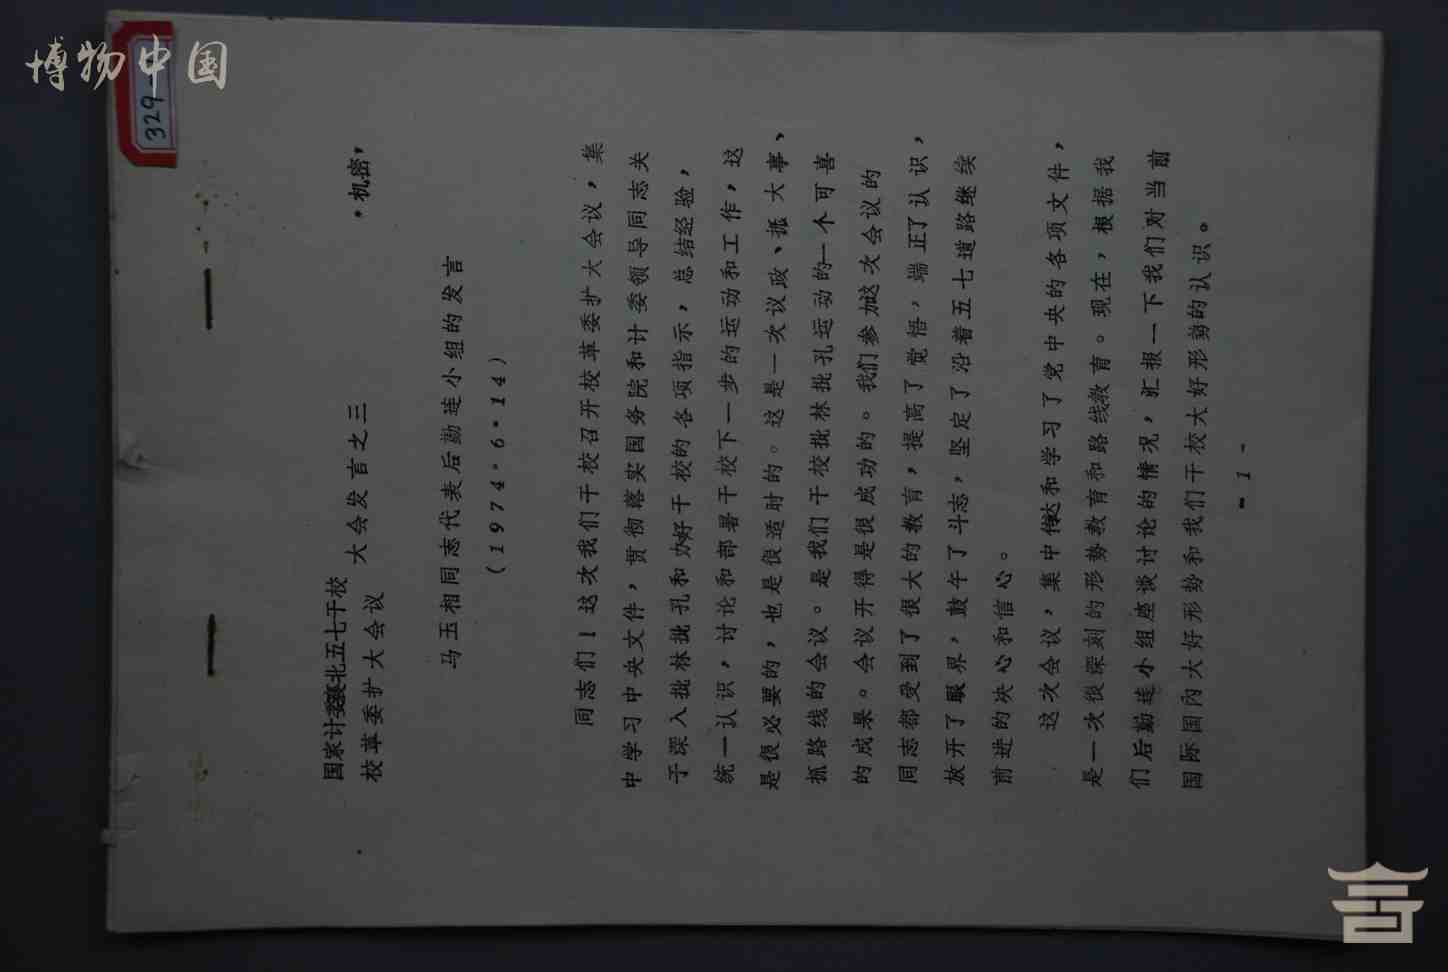 博物中国
329
“机密”
国家计委襄北五七干校
校革委扩大会议
大会发言之三
马玉相同志代表后勤连小组的发言
(1974·6·14)
同志们!这次我们干校召开校革委扩大会议,集
中学习中央文件,贯彻落实国务院和计委领导同志关
于深入批林批孔和办好干校的各项指示,总结经验,
统一认识,讨论和部署干校下一步的运动和工作,这
是很必要的,也是很适时的。这是一次议政、抓大事、
抓路线的会议。是我们干校批林批孔运动的一个可喜
的成果。会议开得是很成功的。我们参加这次会议的
同志都受到了很大的教育,提高了觉悟,端正了认识,
放开了眼界,鼓午了斗志,坚定了沿着五七道路继续
前进的决心和信心。
这次会议,集中传达和学习了党中央的各项文件,
是一次很深刻的形势教育和路线教育。现在,根据我
们后勤连小组座谈讨论的情况,汇报一下我们对当前
国际国内大好形势和我们干校大好形势的认识。
- 1 -